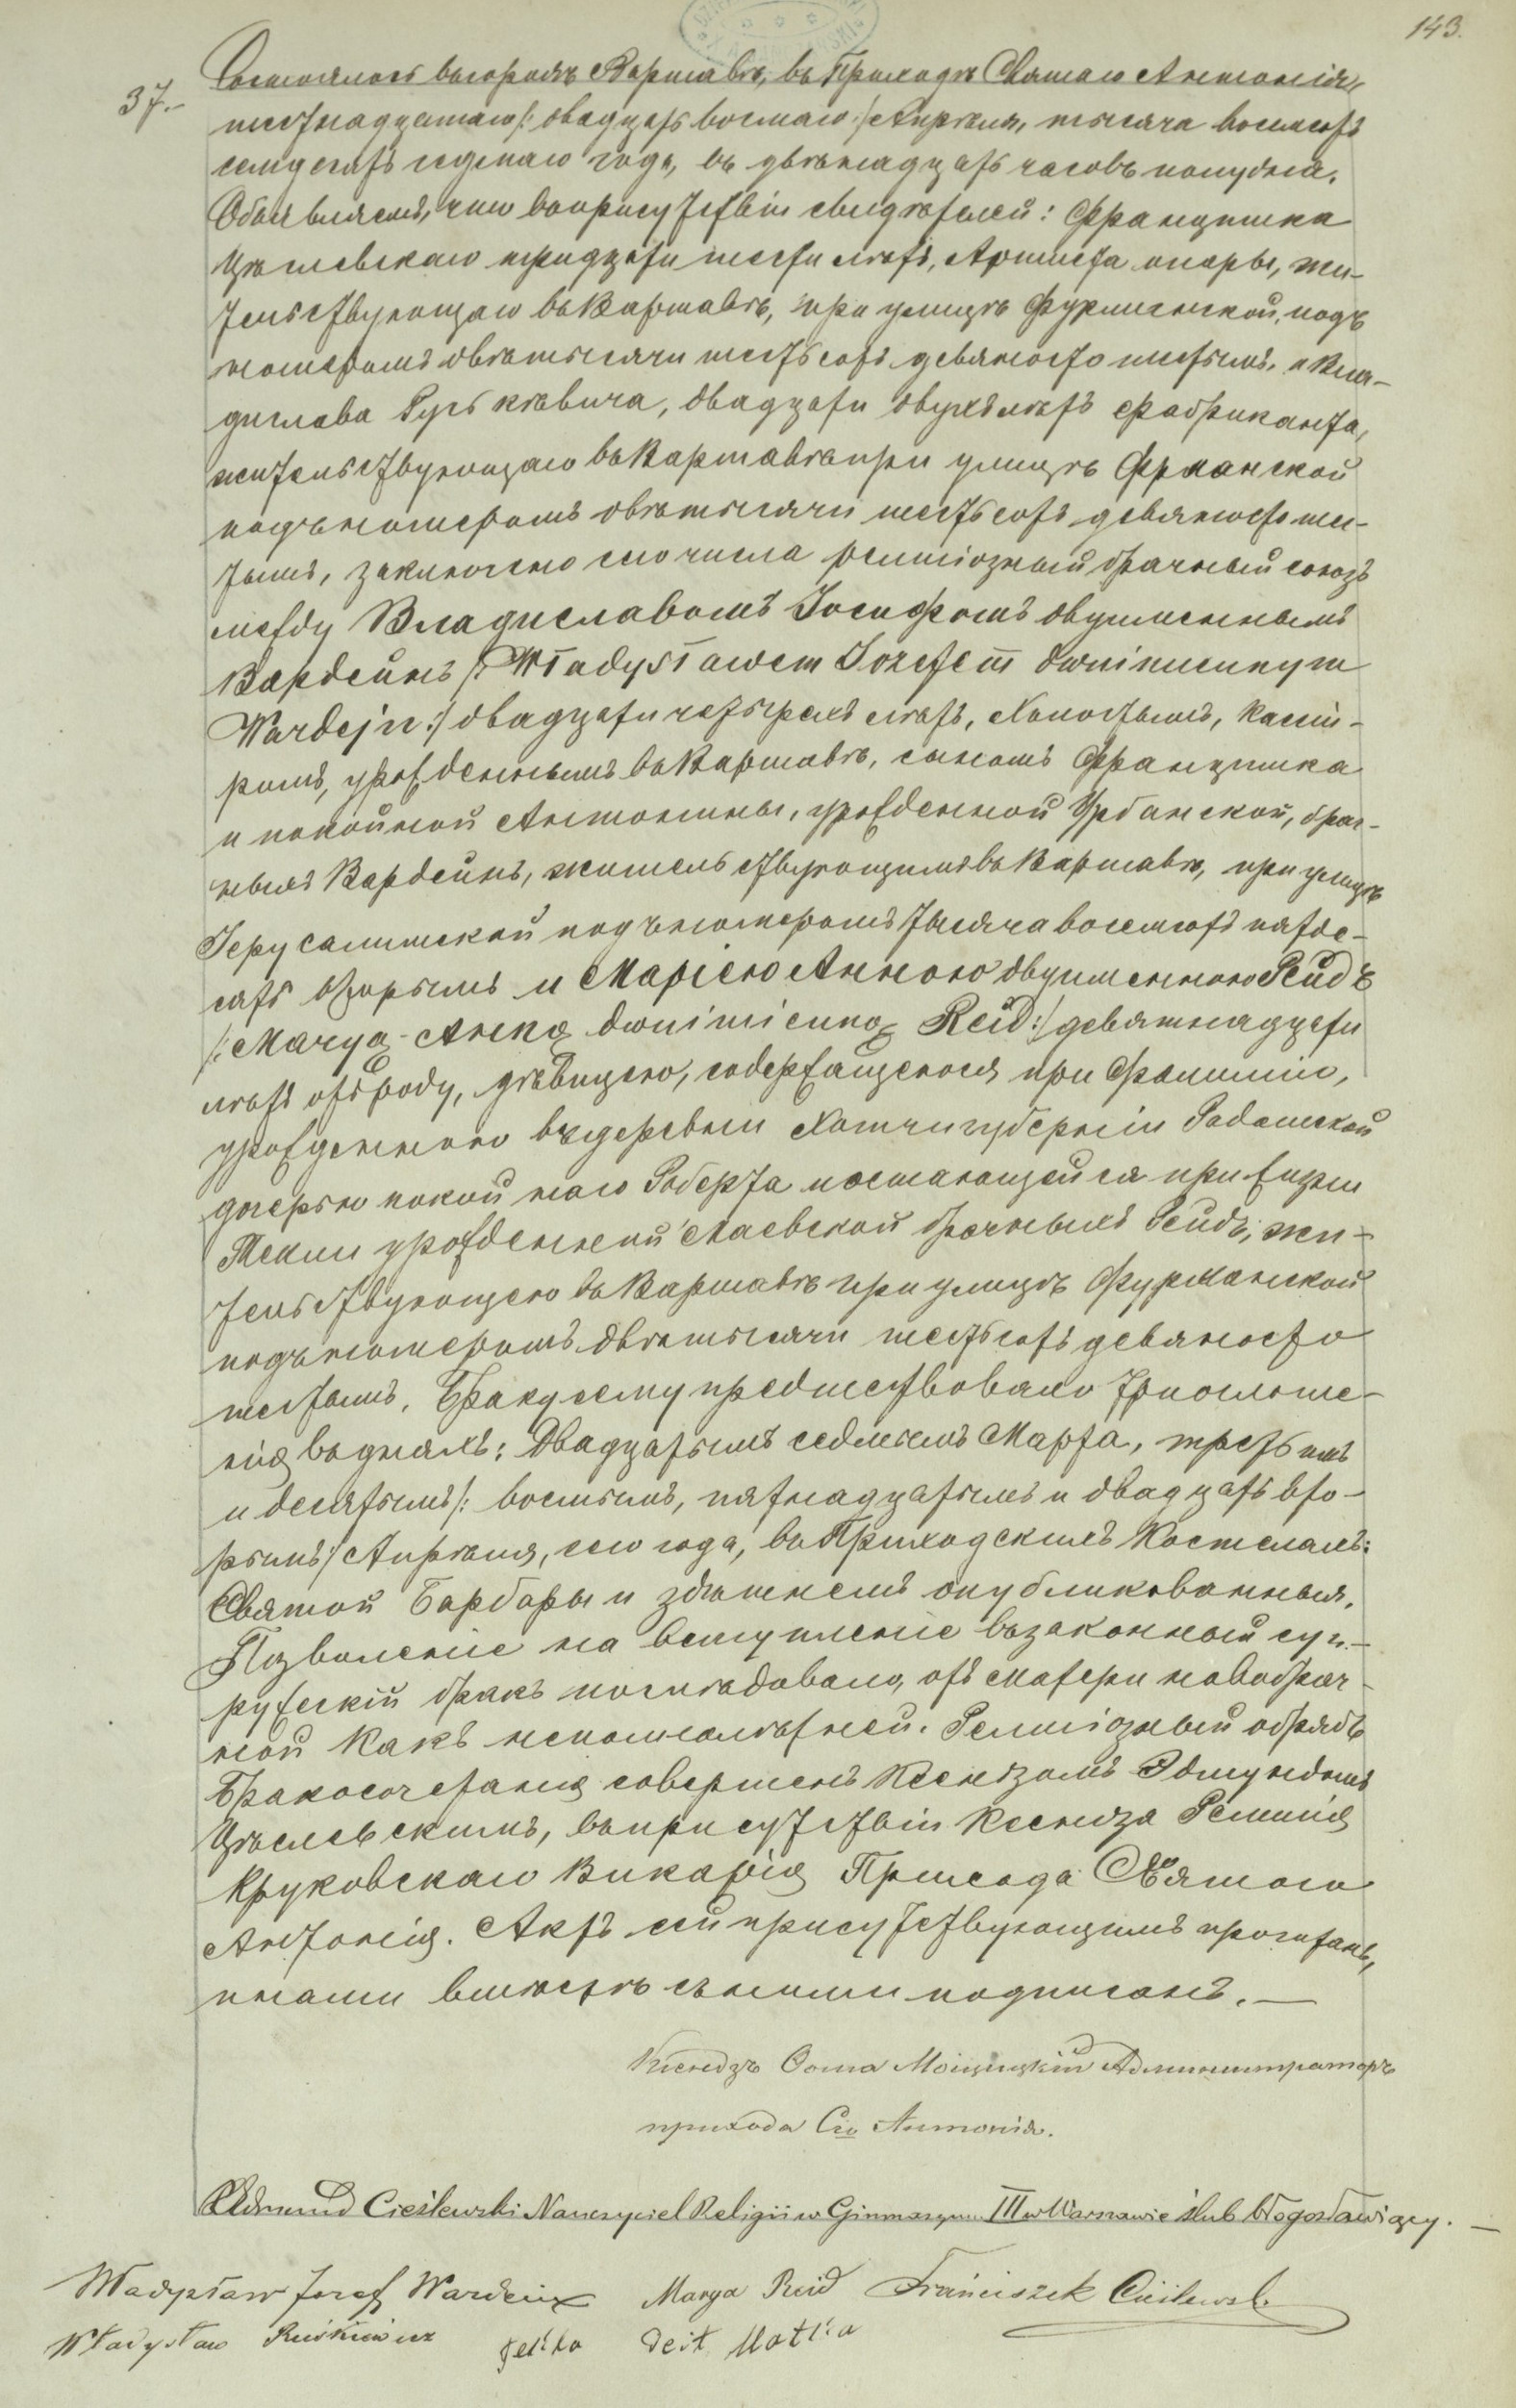 143.
37.-
Состоялось въ городѣ Варшавѣ, въ Приходѣ Святаго Антонія,
шестнадцатаго /: двадцать восмаго :/ Апрѣля, тысяча восемсотъ
семдесятъ седмаго года, въ двѣнадцать часовъ полудня.
Объявляемъ, что въ присутствіи свидѣтелей: Францишка
Цѣслевскаго тридцати шести лѣтъ, Артиста оперы, жи-
тельствующаго въ Варшавѣ, при улицѣ Фурманской, подъ
номеромъ двѣ тысячи шестьсотъ девяносто шестымъ, и Вла-
дислава Руськѣвича, двадцати двухъ лѣтъ фабриканта,
жительствующаго въ Варшавѣ при улицѣ Фрманской
подъ номеромъ двѣ тысячи шестьсотъ девяносто шес-
тымъ, заключено сего числа религіозный брачный союзъ
между Владиславомъ Іосифомъ двуименнымъ
Вардейнъ /: Władysławem Józefem dwuimiennym
Wardejn :/ двадцати четырехъ лѣтъ, Холостымъ, касси-
ромъ, урожденнымъ въ Варшавѣ, сыномъ Францишка
и покойной Антонины, урожденной Урбанской, брач-
ныхъ Вардейнъ, жительствующимъ въ Варшавѣ, при улицѣ
Іерусалимской подъ номеромъ тысяча восемсотъ пятьде-
сятъ вторымъ и Маріею Анною двуименною Рейдъ
/: Maryą-Anną dwuimienną Reid :/ девятнадцати
лѣтъ отъ роду, дѣвицею, содержащеюся при Фамиліи,
урожденною въ деревни Хотчи губерніи Радомской
дочерью покойнаго Роберта и остающейся при жизни
Текли урожденной Маевской брачныхъ Рейдъ, жи-
тельствующею въ Варшавѣ при улицѣ Фурманской
подъ номеромъ двѣ тысячи шестьсотъ девяносто
шестымъ. Браку сему предшествовало три оглаше-
нія въ дняхъ: Двадцатымъ седмымъ Марта, третьимъ
и десятымъ /: восмымъ, пятнадцатымъ и двадцать вто-
рымъ :/ Апрѣля, сего года, въ Приходскихъ Костелахъ:
Святой Барбары и здѣшнемъ опубликованныя.
Позволеніе на вступленіе въ законный суп-
ружескій бракъ послѣдовало, отъ матери новобрач-
ной какъ несовершеннолѣтней. Религіозный обрядъ
Бракосочетанія совершенъ Ксендзомъ Эдмундомъ
Цѣслевскимъ, въ присутствіи Ксендза Ремигія
Круковскаго Викарія Прихода Святаго
Антонія. Актъ сей присутствующимъ прочитанъ,
и нами вмѣстѣ съ ними подписанъ. —
Ксендзъ Ѳома Мощицкій Администраторъ
прихода Сго Антонія.
X Edmund Cieślewski Nauczyciel Religii w Gimnazyum III w Warszawie ślub błogosławiący. —
Władysław Józef Wardein Marya Reid Franciszek Cieślewski
Władysław Ruśkiewicz Tekla Reit Matka